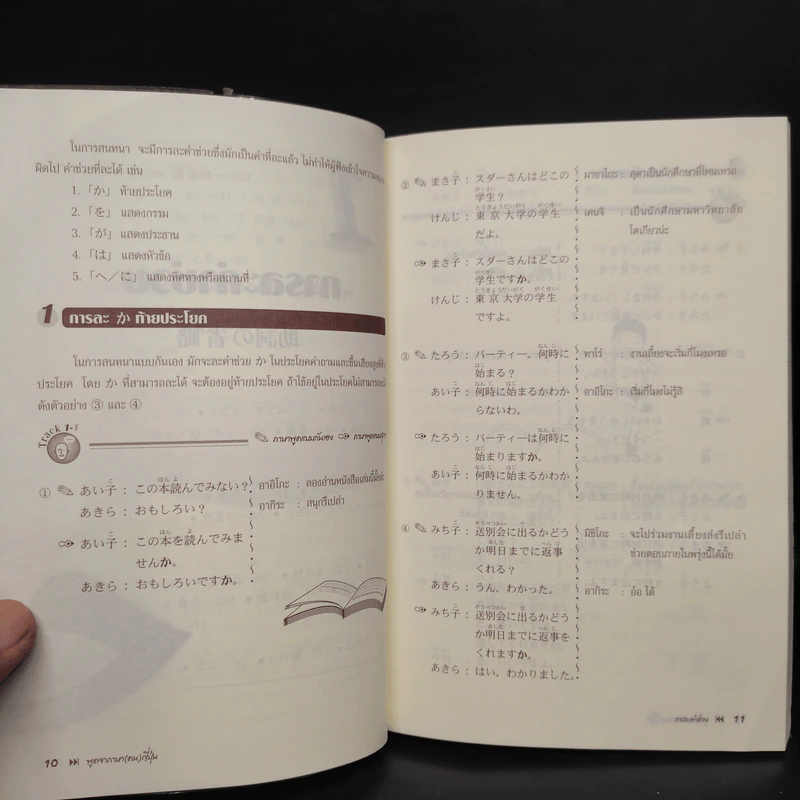 ในการสนทนา จะมีการละคำช่วยซึ่งมักเป็นคำที่ละแล้ว ไม่ทำให้ผู้ฟังเข้าใจความหมาย
ผิดไป คำช่วยที่ละได้ เช่น
1. 「か」 ท้ายประโยค
2. 「を」 แสดงกรรม
3. 「が」 แสดงประธาน
4. 「は」 แสดงหัวข้อ
5. 「へ/に」 แสดงทิศทางหรือสถานที่
1 การละ か ท้ายประโยค
ในการสนทนาแบบกันเอง มักจะละคำช่วย か ในประโยคคำถามและขึ้นเสียงสูงที่ท้าย
ประโยค โดย か ที่สามารถละได้ จะต้องอยู่ท้ายประโยค ถ้าใช้อยู่ในประโยคไม่สามารถละได้
ดังตัวอย่าง ③ และ ④
Track 1-1
ภาษาพูดแบบกันเอง ภาษาพูดแบบสุภาพ
① あい子 : この本読んでみない? อาอิโกะ : ลองอ่านหนังสือเล่มนี้มั้ย
あきら : おもしろい? อากิระ : สนุกรึเปล่า
あい子 : この本を読んでみま
せんか。
あきら : おもしろいですか。
10 พูดจาภาษา(คน)ญี่ปุ่น
② まさ子 : スダーさんはどこの มาซาโกะ : สุดาเป็นนักศึกษาที่ไหนเหรอ
学生?
けんじ : 東京大学の学生 เคนจิ : เป็นนักศึกษามหาวิทยาลัย
だよ。 โตเกียวน่ะ
まさ子 : スダーさんはどこの
学生ですか。
けんじ : 東京大学の学生
ですよ。
③ たろう : パーティー、何時に ทาโร่ : งานเลี้ยงจะเริ่มกี่โมงเหรอ
始まる?
あい子 : 何時に始まるかわか อาอิโกะ : เริ่มกี่โมงไม่รู้สิ
らないわ。
たろう : パーティーは何時に
始まりますか。
あい子 : 何時に始まるかわか
りません。
④ みち子 : 送別会に出るかどう มิชิโกะ : จะไปร่วมงานเลี้ยงส่งรึเปล่า
か明日までに返事 ช่วยตอบภายในพรุ่งนี้ได้มั้ย
くれる?
あきら : うん、わかった。 อากิระ : อ้อ ได้
みち子 : 送別会に出るかどう
か明日までに返事を
くれますか。
あきら : はい、わかりました。
การละคำช่วย 11